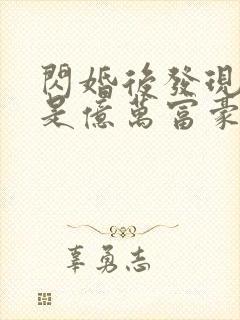 閃婚後發現
是億萬富豪
辜勇志